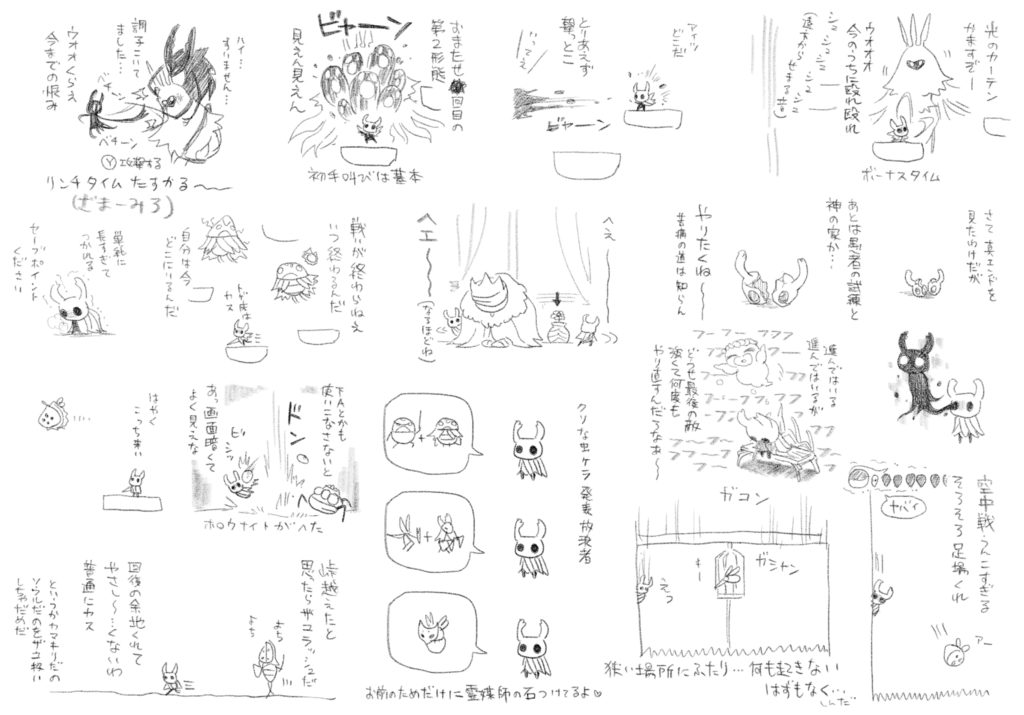 光のカーテン
かますぞー
ウオオオ
今のうちに殴れ殴れ
シュシュシュシュ
(遠方からせまる音)
ボーナスタイム
アイツ
どこだ
とりあえず
撃っとこ
いってえ
ビャーン
おまたせ
回目の
第2形態
ビャーン
見えん見えん
初手叫びは基本
ハイ…
すいません…
調子こいて
ました…
ウオオくらえ
今までの恨み
ペチーン
ペチーン
Y攻撃する
リンチタイム たすかる〜〜
(ざまーみろ)
さて真エンドを
見たわけだが
あとは愚者の試練と
神の家か…
やりたくね〜
苦痛の道は知らん
へえ
ヘエ〜〜
(なるほどね)
戦いが終わらねえ
いつ終わるんだ
自分は今
どこにいるんだ
トゲ床は
カス
単純に
長すぎて
つかれる
セーブポイント
ください
進んではいる
進んではいるが
どうせ最後の敵
強くて何度も
やり直すんだろなあ〜
フーフーフフフ
下Aとかも
使いこなさないと
あっ画面暗くて
よく見えな
ドン
ビシッ
ホロウナイトがへた
はやく
こっち来い
クソな虫ケラ発表放浪者
お前のためだけに霊媒師の石つけてるよ♡
空中戦うんこすぎる
そろそろ足場くれ
ヤバイ
アー
ガコン
ガシャン
キー
えっ
狭い場所にふたり…何も起きない
はずもなく…
しんだ
峠越えたと
思ったらザコラッシュだ
回復の余地くれて
やさし〜…くないわ
普通にカス
というかカマキリだの
ソウルだのをザコ扱い
しちゃだめだ
よち
よち